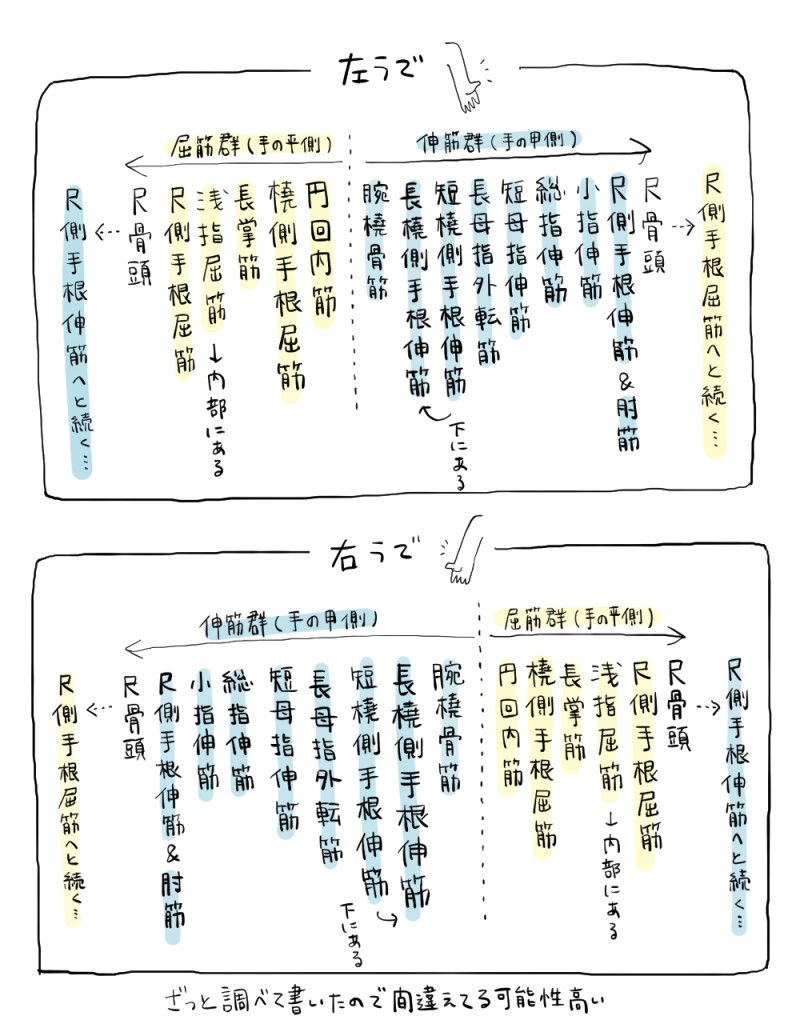 左うで
伸筋群(手の甲側)
屈筋群(手の平側)
尺側手根屈筋へと続く…
尺骨頭
尺側手根伸筋&肘筋
小指伸筋
総指伸筋
短母指伸筋
長母指外転筋
短橈側手根伸筋
長橈側手根伸筋
下にある
腕橈骨筋
円回内筋
橈側手根屈筋
長掌筋
浅指屈筋→内部にある
尺側手根屈筋
尺骨頭
尺側手根伸筋へと続く…
右うで
屈筋群(手の平側)
伸筋群(手の甲側)
尺側手根伸筋へと続く…
尺骨頭
尺側手根屈筋
浅指屈筋→内部にある
長掌筋
橈側手根屈筋
円回内筋
腕橈骨筋
長橈側手根伸筋
短橈側手根伸筋
下にある
長母指外転筋
短母指伸筋
総指伸筋
小指伸筋
尺側手根伸筋&肘筋
尺骨頭
尺側手根屈筋へと続く…
ざっと調べて書いたので間違えてる可能性高い